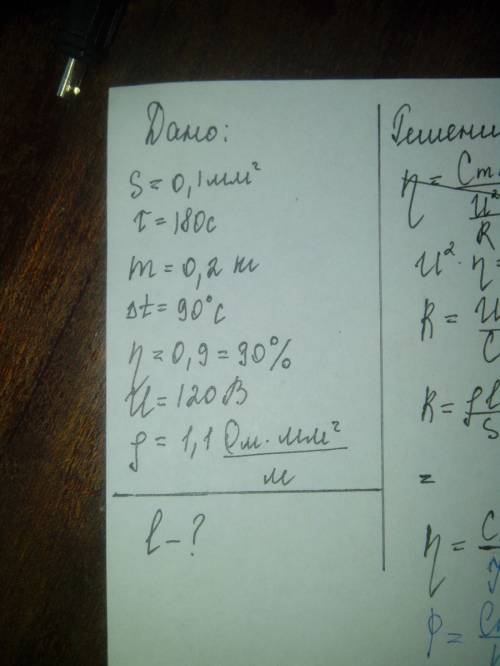 Дано:
S = 0,1 мм²
τ = 180с
m = 0,2 кг
Δt = 90°с
η = 0,9 = 90%
U = 120В
ρ = 1,1 Ом·мм²
м
l - ?
Решени
η = Cm
U²
R
U² · η =
R = U
C
R = ρl
S
=
η = C
φ = Cm